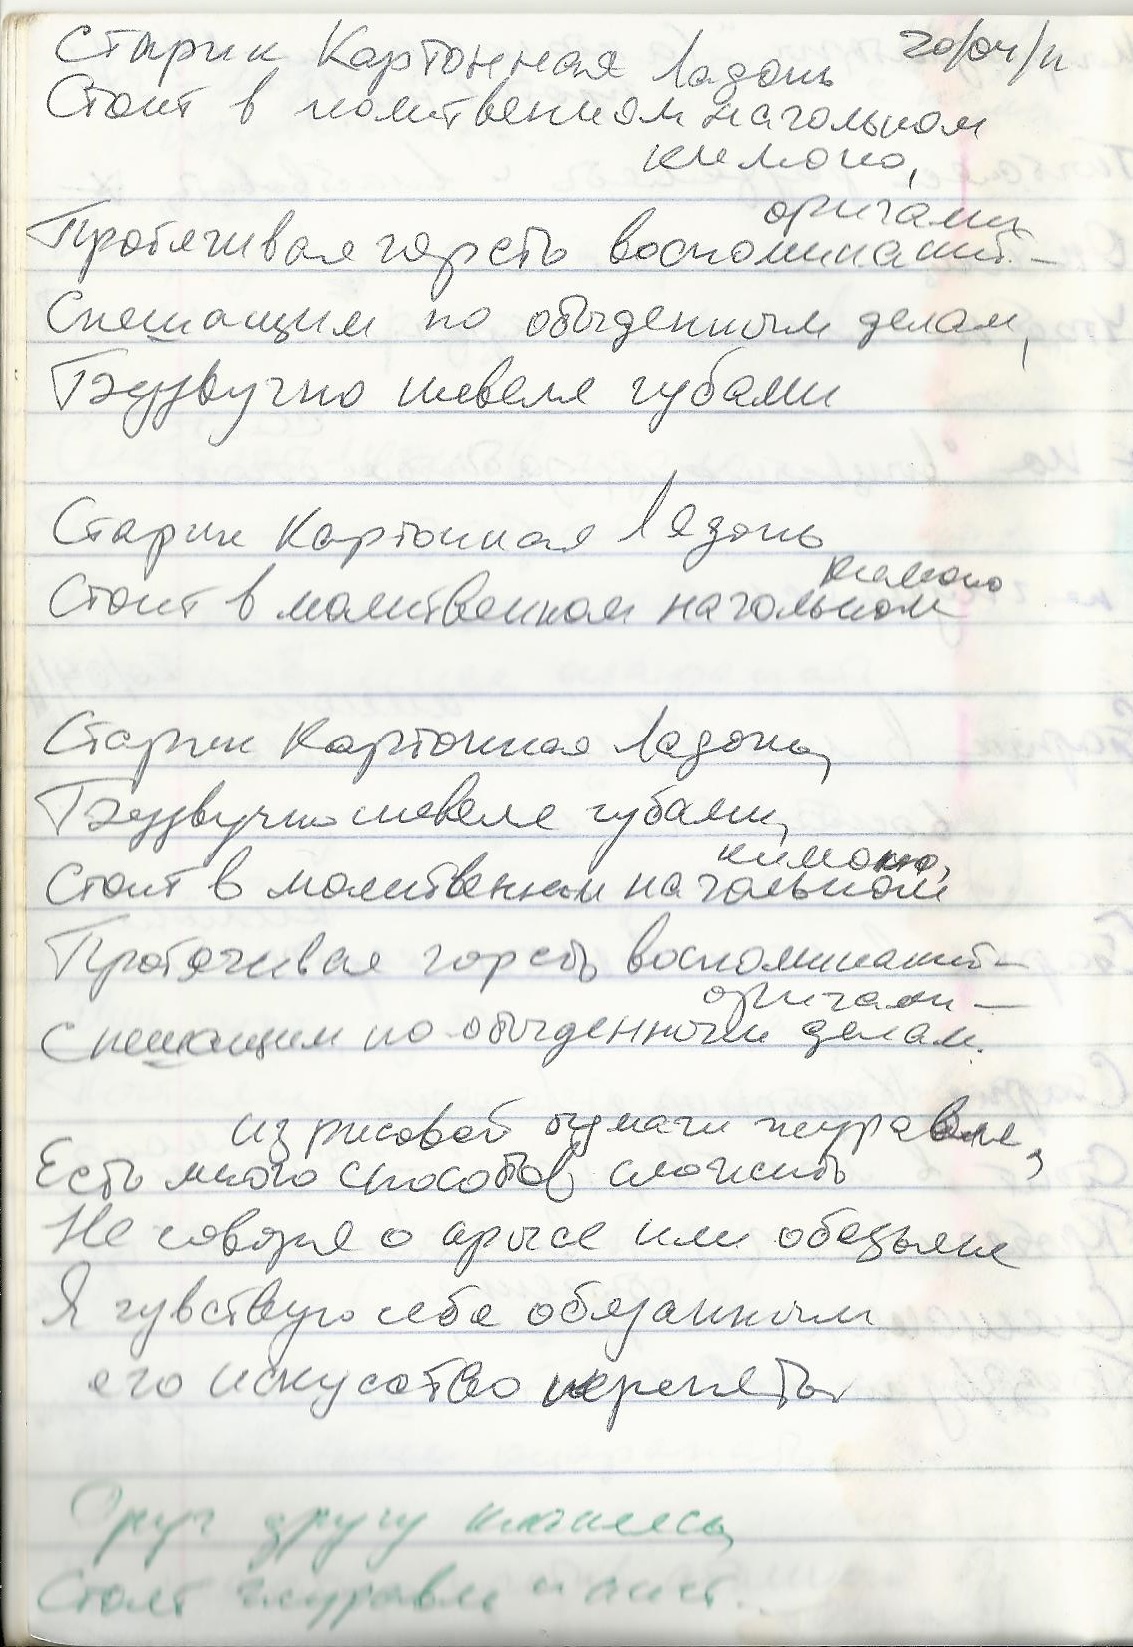 Старик Картонная Ладонь 20/04/11
Стоит в молитвенном нагольном
кимоно,
оригами
Протягивая горсть воспоминаний –
Спешащим по обыденным делам,
Беззвучно шевеля губами
Старик Картонная Ладонь
кимоно
Стоит в молитвенном нагольном
Старик Картонная Ладонь,
Беззвучно шевеля губами,
кимоно,
Стоит в молитвенном нагольном
Протягивая горсть воспоминаний –
оригами –
Спешащим по обыденным делам.
из рисовой бумаги журавля,
Есть много способов сложить
Не говоря о крысе или обезьяне
Я чувствую себя обязанным
его искусство перенять
Друг другу
Стоят журавли и аист...